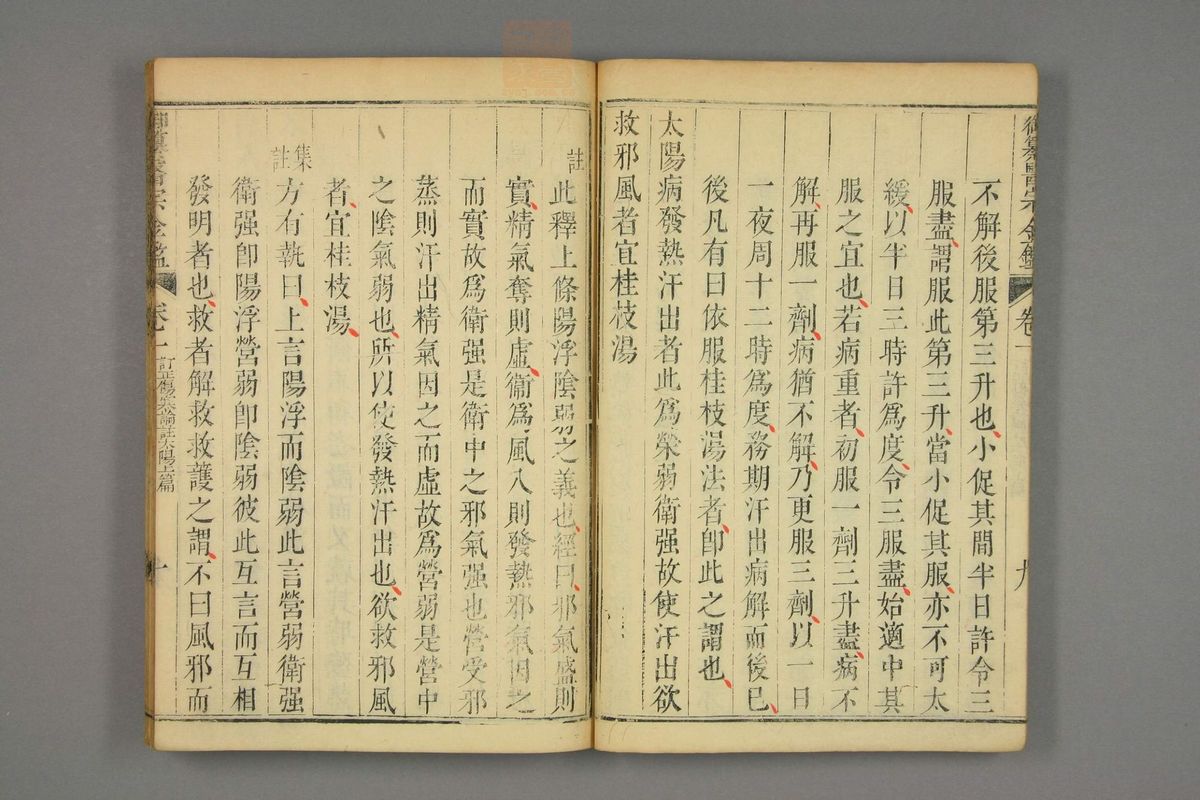 御纂醫宗金鑑 卷一 九
不解後服第三升也小促其間半日許令三
服盡謂服此第三升當小促其服亦不可太
緩以半日三時許爲度令三服盡始適中其
服之宜也若病重者初服一劑三升盡病不
解再服一劑病猶不解乃更服三劑以一日
一夜周十二時爲度務期汗出病解而後已
後凡有曰依服桂枝湯法者卽此之謂也
太陽病發熱汗出者此爲榮弱衛强故使汗出欲
救邪風者宜桂枝湯
註 此釋上條陽浮陰弱之義也經曰邪氣盛則
實精氣奪則虛衞爲風入則發熱邪氣因之
而實故爲衛强是衛中之邪氣强也營受邪
蒸則汗出精氣因之而虛故爲營弱是營中
之陰氣弱也所以使發熱汗出也欲救邪風
者宜桂枝湯
集註 方有執曰上言陽浮而陰弱此言營弱衛强
衛强卽陽浮營弱卽陰弱彼此互言而互相
發明者也救者解救救護之謂不曰風邪而
御纂醫宗金鑑 卷一 訂正傷寒論註太陽上篇 十